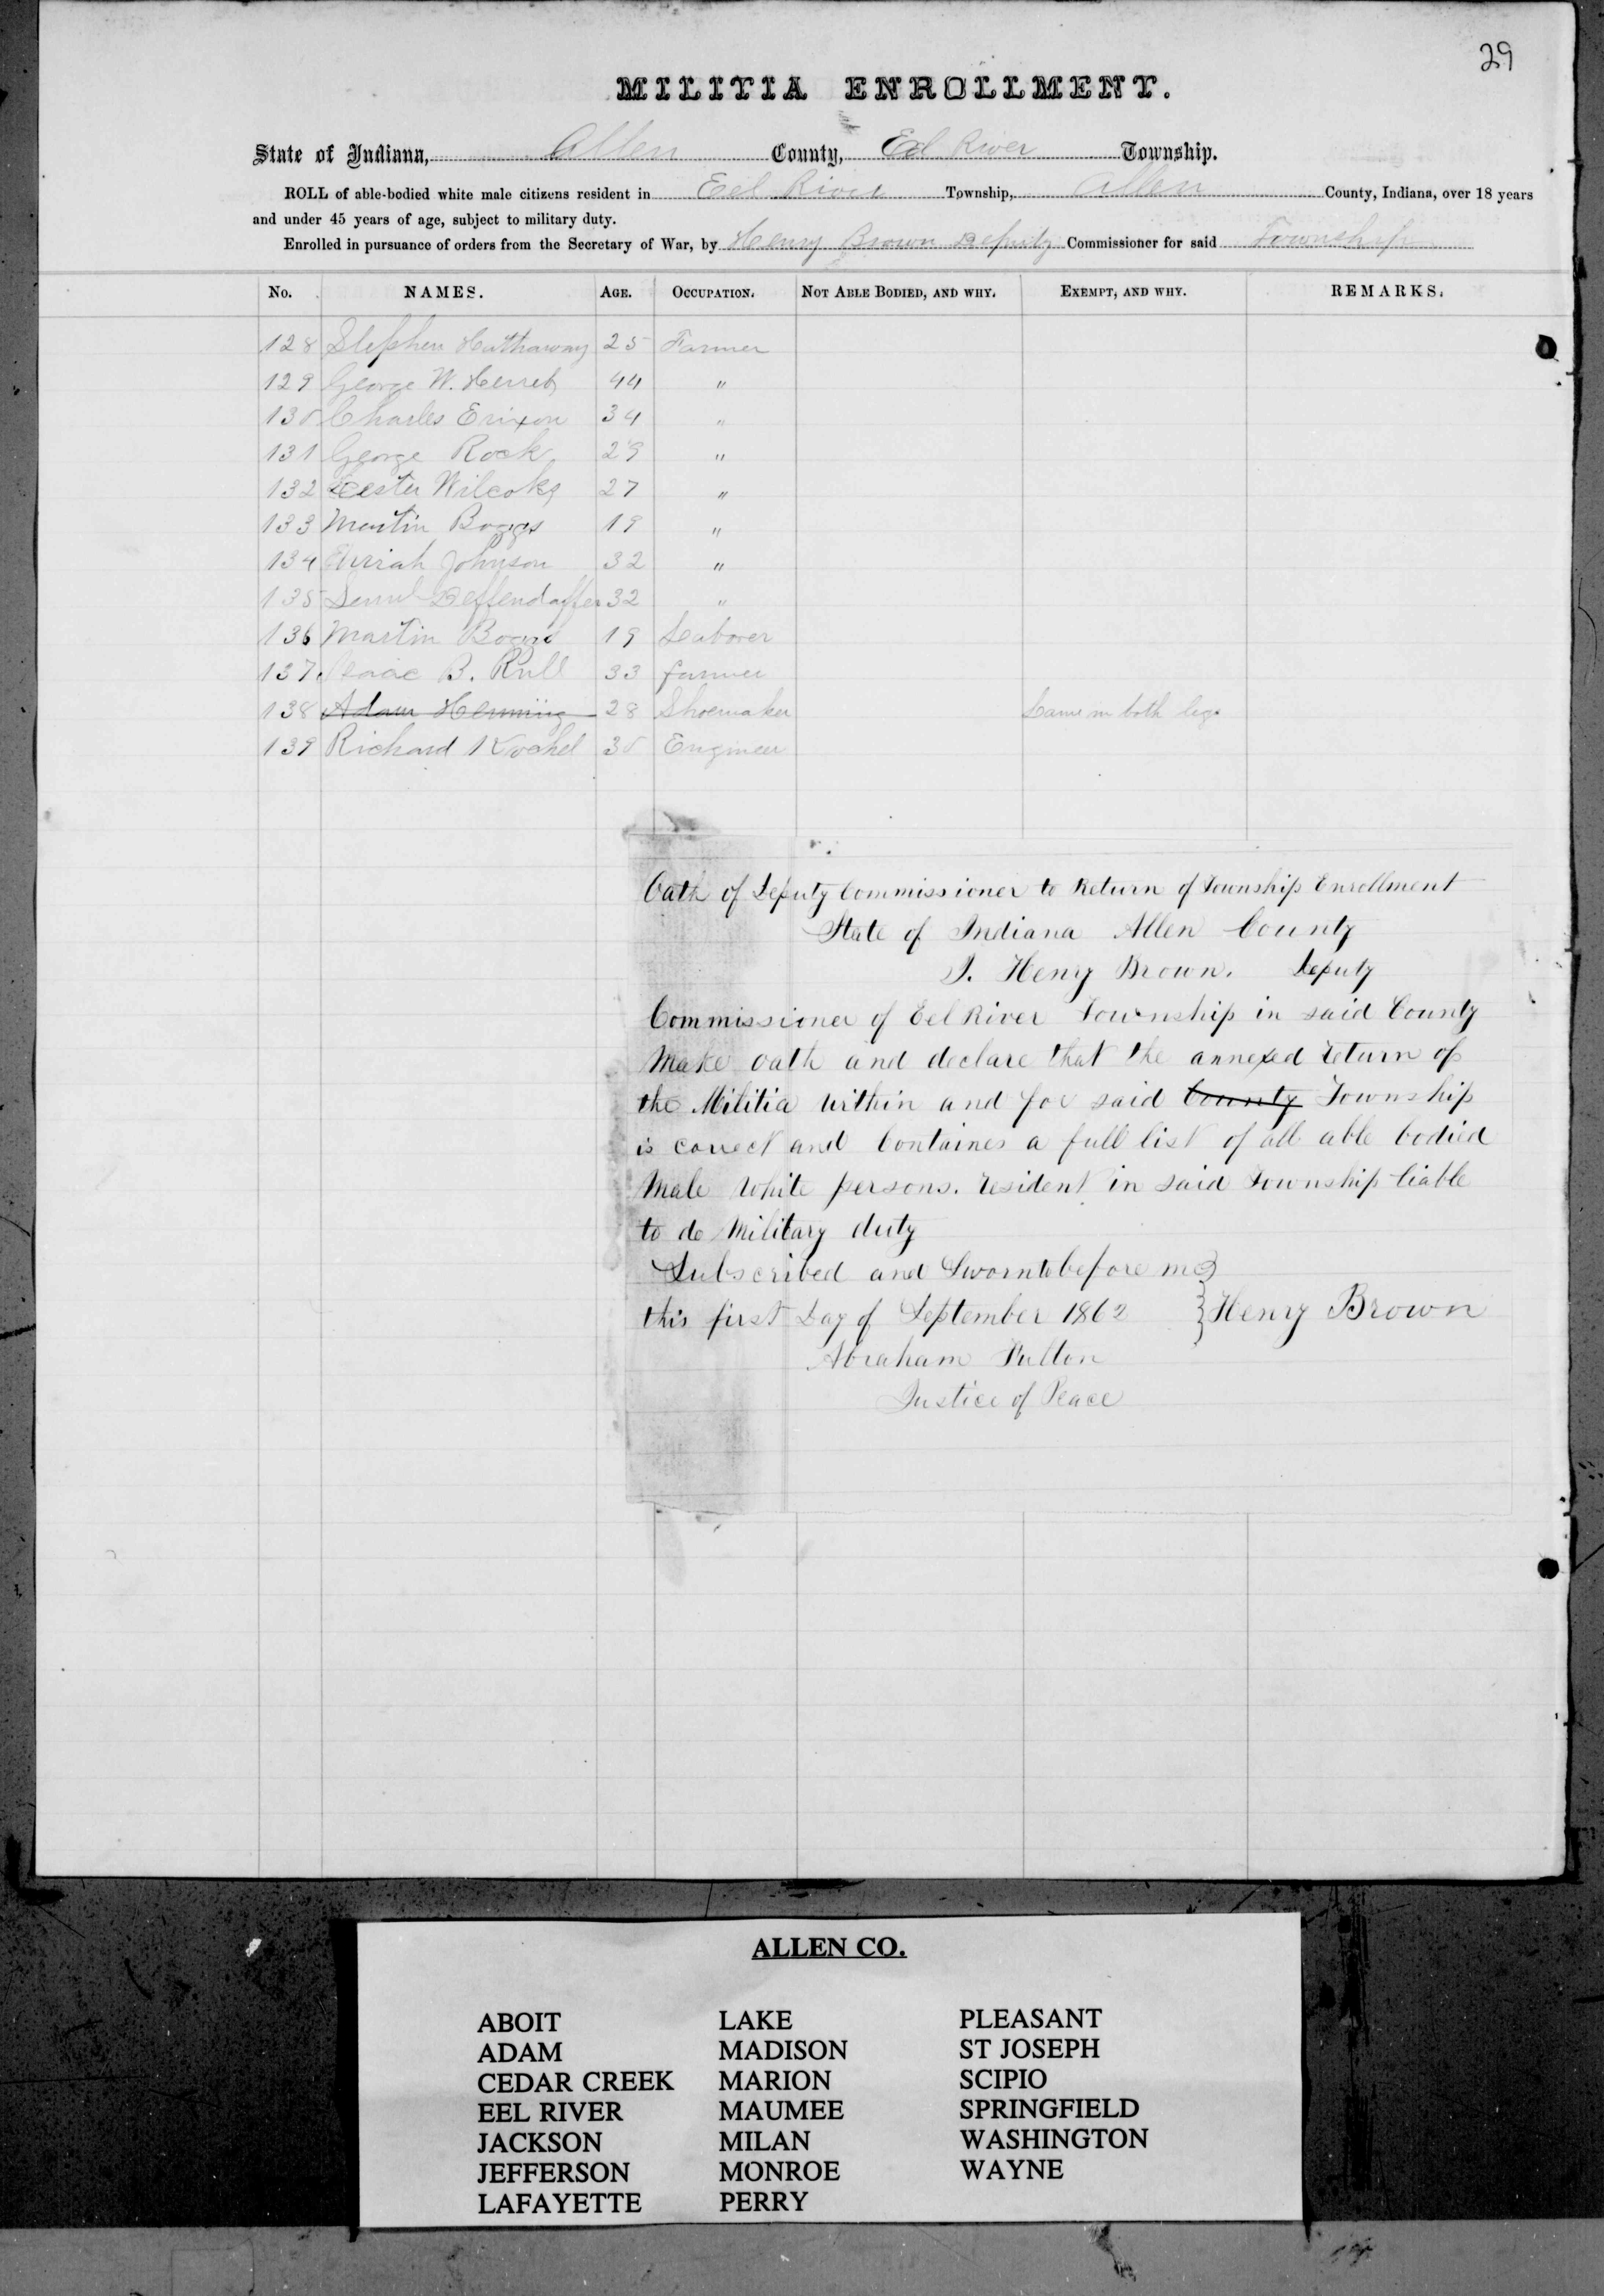 29
MILITIA ENROLLMENT.
State of Indiana, Allen County, Eel River Township.
ROLL of able-bodied white male citizens resident in Eel River Township, Allen County, Indiana, over 18 years
and under 45 years of age, subject to military duty.
Enrolled in pursuance of orders from the Secretary of War, by Henry Brown Deputy Commissioner for said Township
No. NAMES. AGE. OCCUPATION. NOT ABLE BODIED, AND WHY. EXEMPT, AND WHY. REMARKS.
128 Stephen Hathaway 25 Farmer
129 George W. 44 "
130 Charles Erixon 34 "
131 George Rock 29 "
132 Wilcoks 27 "
133 Martin Boggs 19 "
134 Johnson 32 "
135 Deffendaffer 32 "
136 Martin 19 Labover
137 Isaac B. Rull 33 farmer
138 Adam Henning 28 Shoemaker Lame in both legs
139 Richard Kochel 30 Engineer
Oath of Deputy Commissioner to Return of Township Enrollment
State of Indiana Allen County
I. Henry Brown. Deputy
Commissioner of Eel River Township in said County
Make oath and declare that the annexed return of
the Militia within and for said County Township
is correct and Containes a full list of all able bodied
Male White persons. resident in said Township liable
to do Military duty
Subscribed and Sworn to before me
this first Day of September 1862 } Henry Brown
Abraham Pulton
Justice of Peace
ALLEN CO.
ABOIT LAKE PLEASANT
ADAM MADISON ST JOSEPH
CEDAR CREEK MARION SCIPIO
EEL RIVER MAUMEE SPRINGFIELD
JACKSON MILAN WASHINGTON
JEFFERSON MONROE WAYNE
LAFAYETTE PERRY